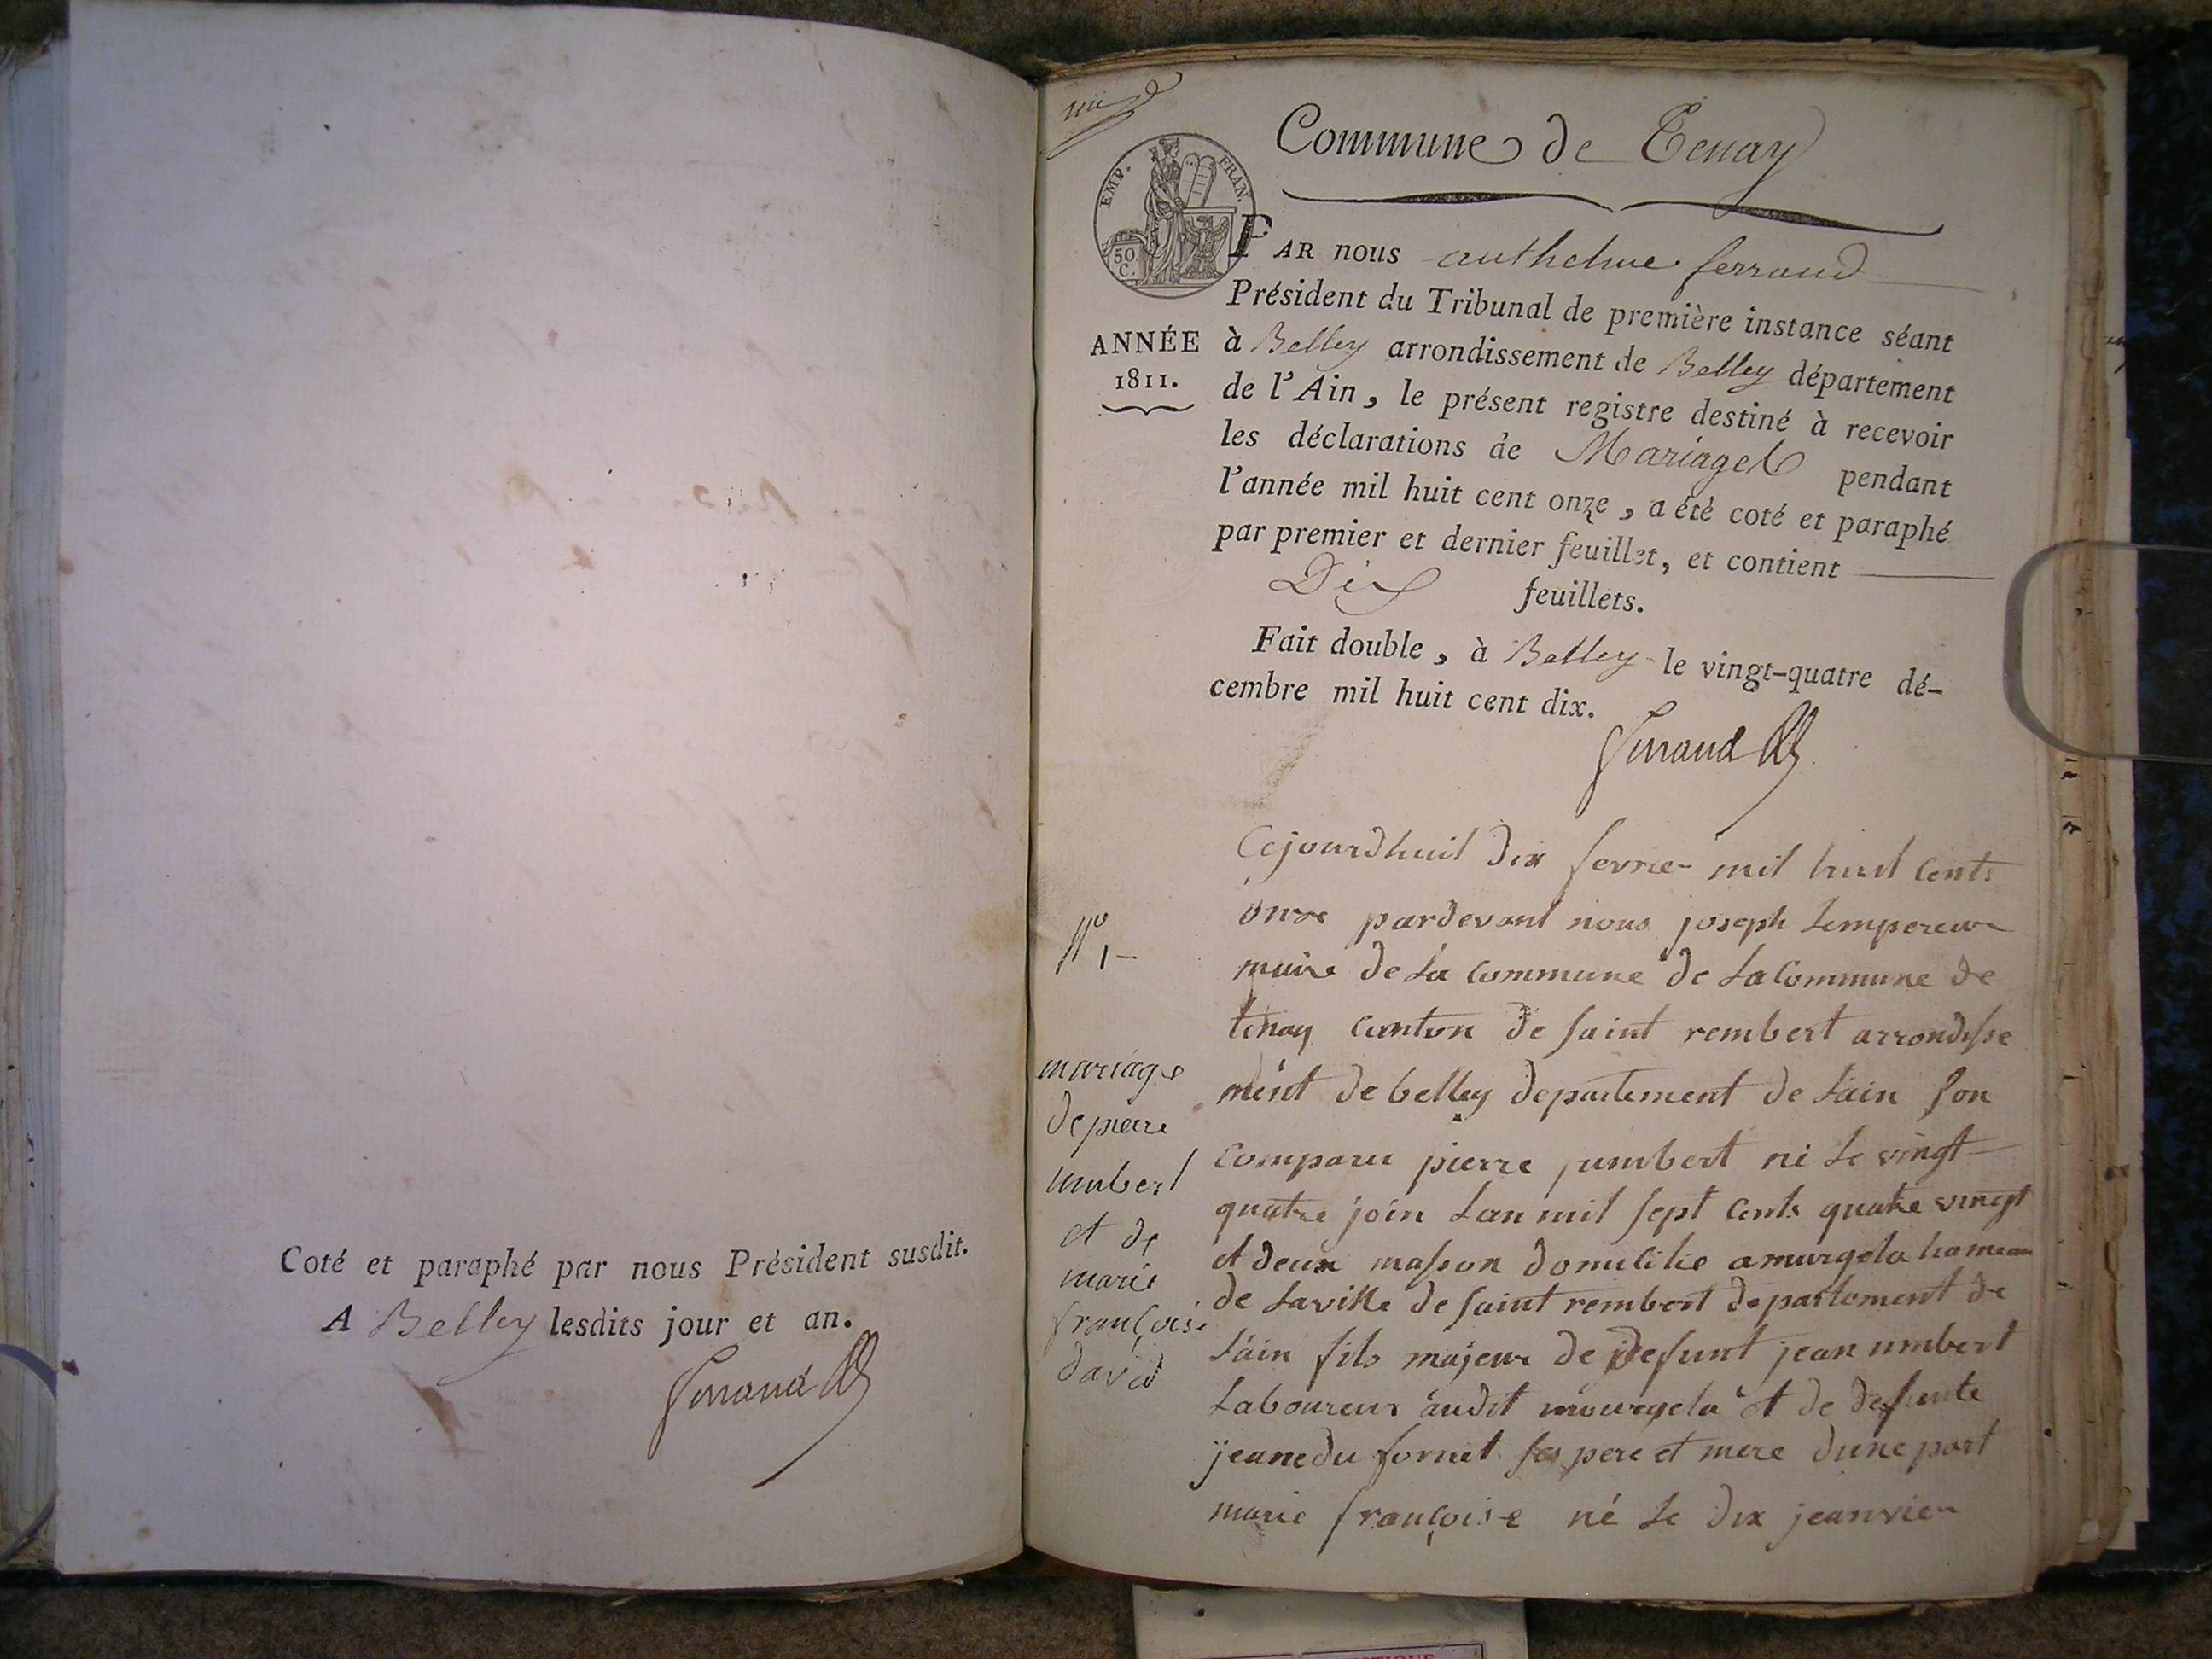 Coté et paraphé par nous Président susdit.
A Belley lesdits jour et an.
Ferrand
Commune de Tenay
EMP. FRAN.
50.
C.
ANNÉE
1811.
PAR nous anthelme ferrand
Président du Tribunal de première instance séant
à Belley arrondissement de Belley département
de l'Ain, le présent registre destiné à recevoir
les déclarations de Mariages pendant
l'année mil huit cent onze, a été coté et paraphé
par premier et dernier feuillet, et contient
Dix feuillets.
Fait double, à Belley le vingt-quatre dé-
cembre mil huit cent dix.
Ferrand
N° 1
mariage
de pierre
umbert
et de
marie
françoise
david
Cejourdhuil dix fevrier mil huit cents
onze pardevant nous joseph Lempereur
maire de La commune de La Commune de
tenay canton de saint rembert arrondisse
ment de belley departement de Lain son
comparu pierre umbert né Le vingt
quatre join Lan mil sept cents quatre vingt
et deux masson domicilie a murgela hameau
de Laville de saint rembert departement de
Lain fils majeur de defunt jean umbert
Laboureur audit mourgela et de defunte
jeane du fornet ses pere et mere dune part
marie françoise né Le dix jeanvier